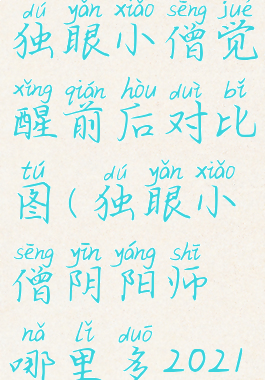 dú yǎn xiǎo sēng jué
独眼小僧觉
xǐng qián hòu duì bǐ
醒前后对比
tú dú yǎn xiǎo
图(独眼小
sēng yīn yáng shī
僧阴阳师
nǎ lǐ duō
哪里多2021